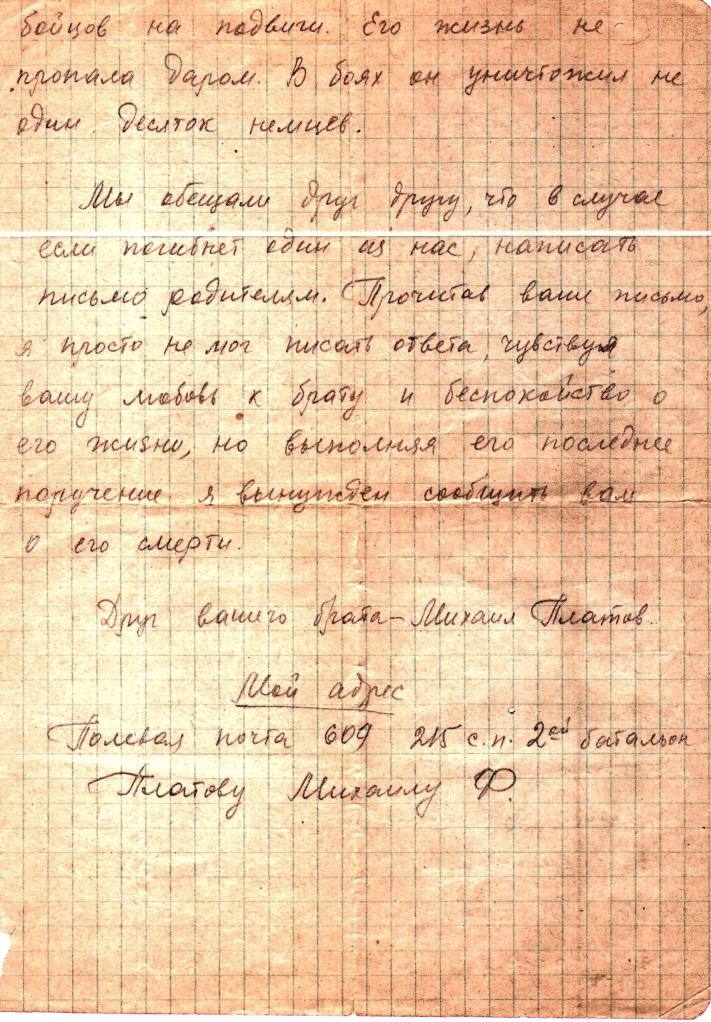 бойцов на подвиги. Его жизнь не
пропала даром. В боях он уничтожил не
один десяток немцев.
Мы обещали друг другу, что в случае
если погибнет один из нас, написать
письмо родителям. Прочитав ваше письмо,
я просто не мог писать ответа, чувствуя
вашу любовь к брату и беспокойство о
его жизни, но выполняя его последнее
поручение я вынужден сообщить вам
о его смерти.
Друг вашего брата – Михаил Платов.
Мой адрес
Полевая почта 609 215 с.п. 2ой батальон
Платову Михаилу Ф.